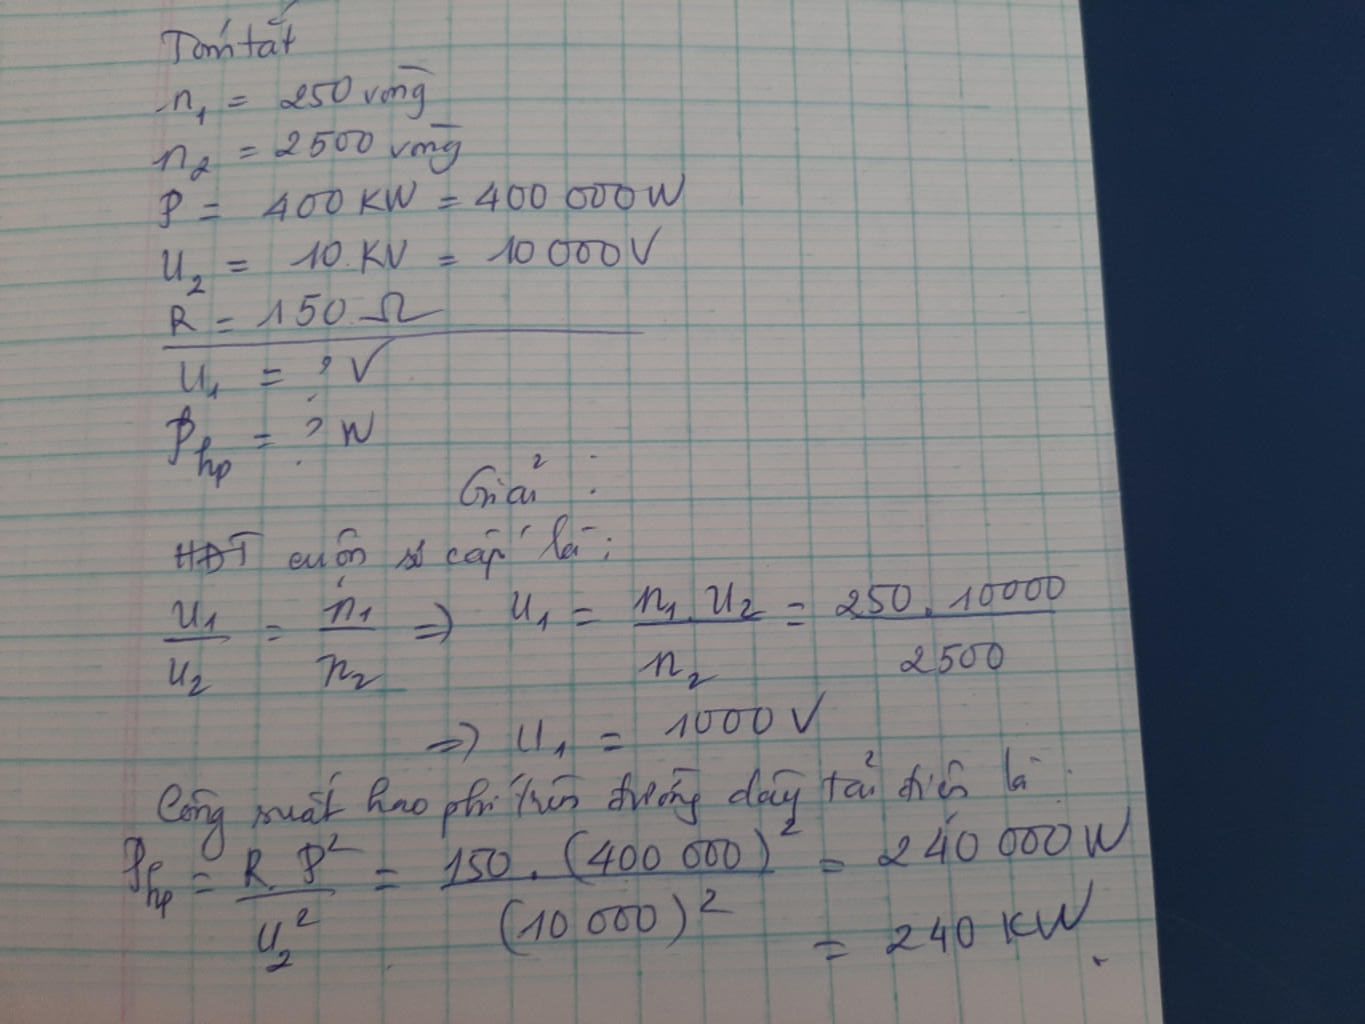 Tóm tắt
n₁ = 250 vòng
n₂ = 2500 vòng
P = 400 KW = 400 000 W
U₂ = 10 KV = 10 000 V
R = 150 Ω
U₁ = ? V
P_hp = ? W
Giải :
HĐT cuộn sơ cấp là :
U₁/U₂ = n₁/n₂ => U₁ = n₁.U₂/n₂ = 250.10000/2500
=> U₁ = 1000 V
Công suất hao phí trên đường dây tải điện là :
P_hp = R.P²/U₂² = 150.(400 000)²/(10 000)² = 240 000 W
= 240 KW.